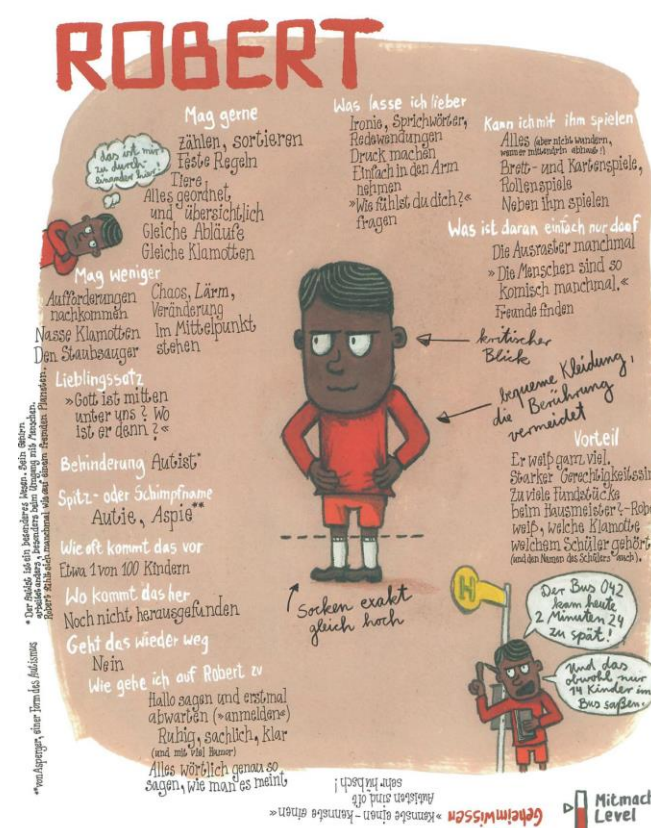 ROBERT
Mag gerne
zählen, sortieren
Feste Regeln
Tiere
Alles geordnet
und übersichtlich
Gleiche Abläufe
Gleiche Klamotten
das ist mir
zu durch-
einander hier!
Mag weniger
Aufforderungen
nachkommen
Nasse Klamotten
Den Staubsauger
Chaos, Lärm,
Veränderung
Im Mittelpunkt
stehen
Lieblingssatz
»Gott ist mitten
unter uns? Wo
ist er denn?«
Behinderung Autist*
Spitz- oder Schimpfname
Autie, Aspie**
Wie oft kommt das vor
Etwa 1 von 100 Kindern
Wo kommt das her
Noch nicht herausgefunden
Geht das wieder weg
Nein
Wie gehe ich auf Robert zu
Hallo sagen und erstmal
abwarten (»anmelden«)
Ruhig, sachlich, klar
(und mit viel Humor)
Alles wörtlich genau so
sagen, wie man es meint
Was lasse ich lieber
Ironie, Sprichwörter,
Redewendungen
Druck machen
Einfach in den Arm
nehmen
»Wie fühlst du dich?«
fragen
Kann ich mit ihm spielen
Alles (aber nicht wundern,
wenn er mittendrin abhaut!)
Brett- und Kartenspiele,
Rollenspiele
Neben ihm spielen
Was ist daran einfach nur doof
Die Ausraster manchmal
»Die Menschen sind so
komisch manchmal.«
Freunde finden
kritischer
Blick
bequeme Kleidung,
die Berührung
vermeidet
Vorteil
Er weiß ganz viel.
Starker Gerechtigkeitssin
Zu viele Fundstücke
beim Hausmeister? – Robe
weiß, welche Klamotte
welchem Schüler gehört
(und den Namen des Schülers auch).
Socken exakt
gleich hoch
H
Der Bus 042
kam heute
2 Minuten 24
zu spät!
Und das
obwohl nur
14 Kinder im
Bus saßen.
* Der Autist ist ein besonderes Wesen. Sein Gehirn
arbeitet anders, besonders beim Umgang mit Menschen.
Robert fühlt sich manchmal wie auf einem fremden Planeten.
** von Asperger, einer Form des Autismus
Geheimwissen
»Kennste einen – kennste einen«
Autisten sind oft
sehr hübsch!
Mitmach
Level